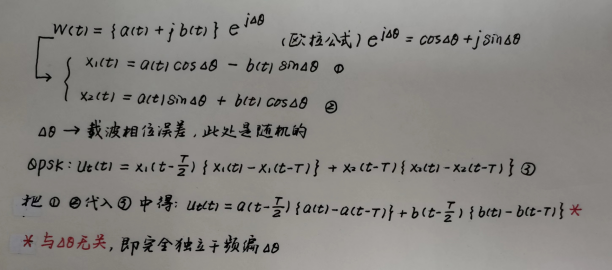 W(t) = {a(t) + j b(t)} e^{jΔθ} (欧拉公式) e^{jΔθ} = cosΔθ + j sinΔθ
x₁(t) = a(t) cosΔθ - b(t) sinΔθ ①
x₂(t) = a(t) sinΔθ + b(t) cosΔθ ②
Δθ → 载波相位误差, 此处是随机的
QPSK: Ut(t) = x₁(t-T/2) {x₁(t) - x₁(t-T)} + x₂(t-T) {x₂(t) - x₂(t-T)} ③
把 ① ② 代入 ③ 中得: Ut(t) = a(t-T/2) {a(t) - a(t-T)} + b(t-T/2) {b(t) - b(t-T)} *
* 与Δθ无关, 即完全独立于频偏Δθ